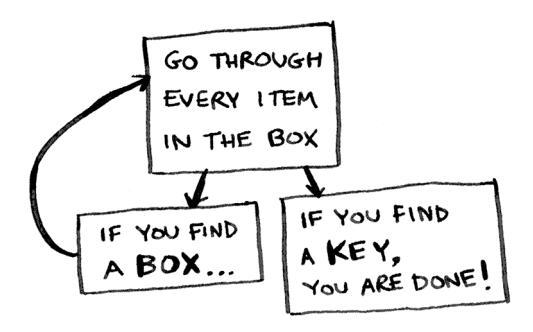 GO THROUGH
EVERY ITEM
IN THE BOX
IF YOU FIND
A BOX...
IF YOU FIND
A KEY,
YOU ARE DONE!